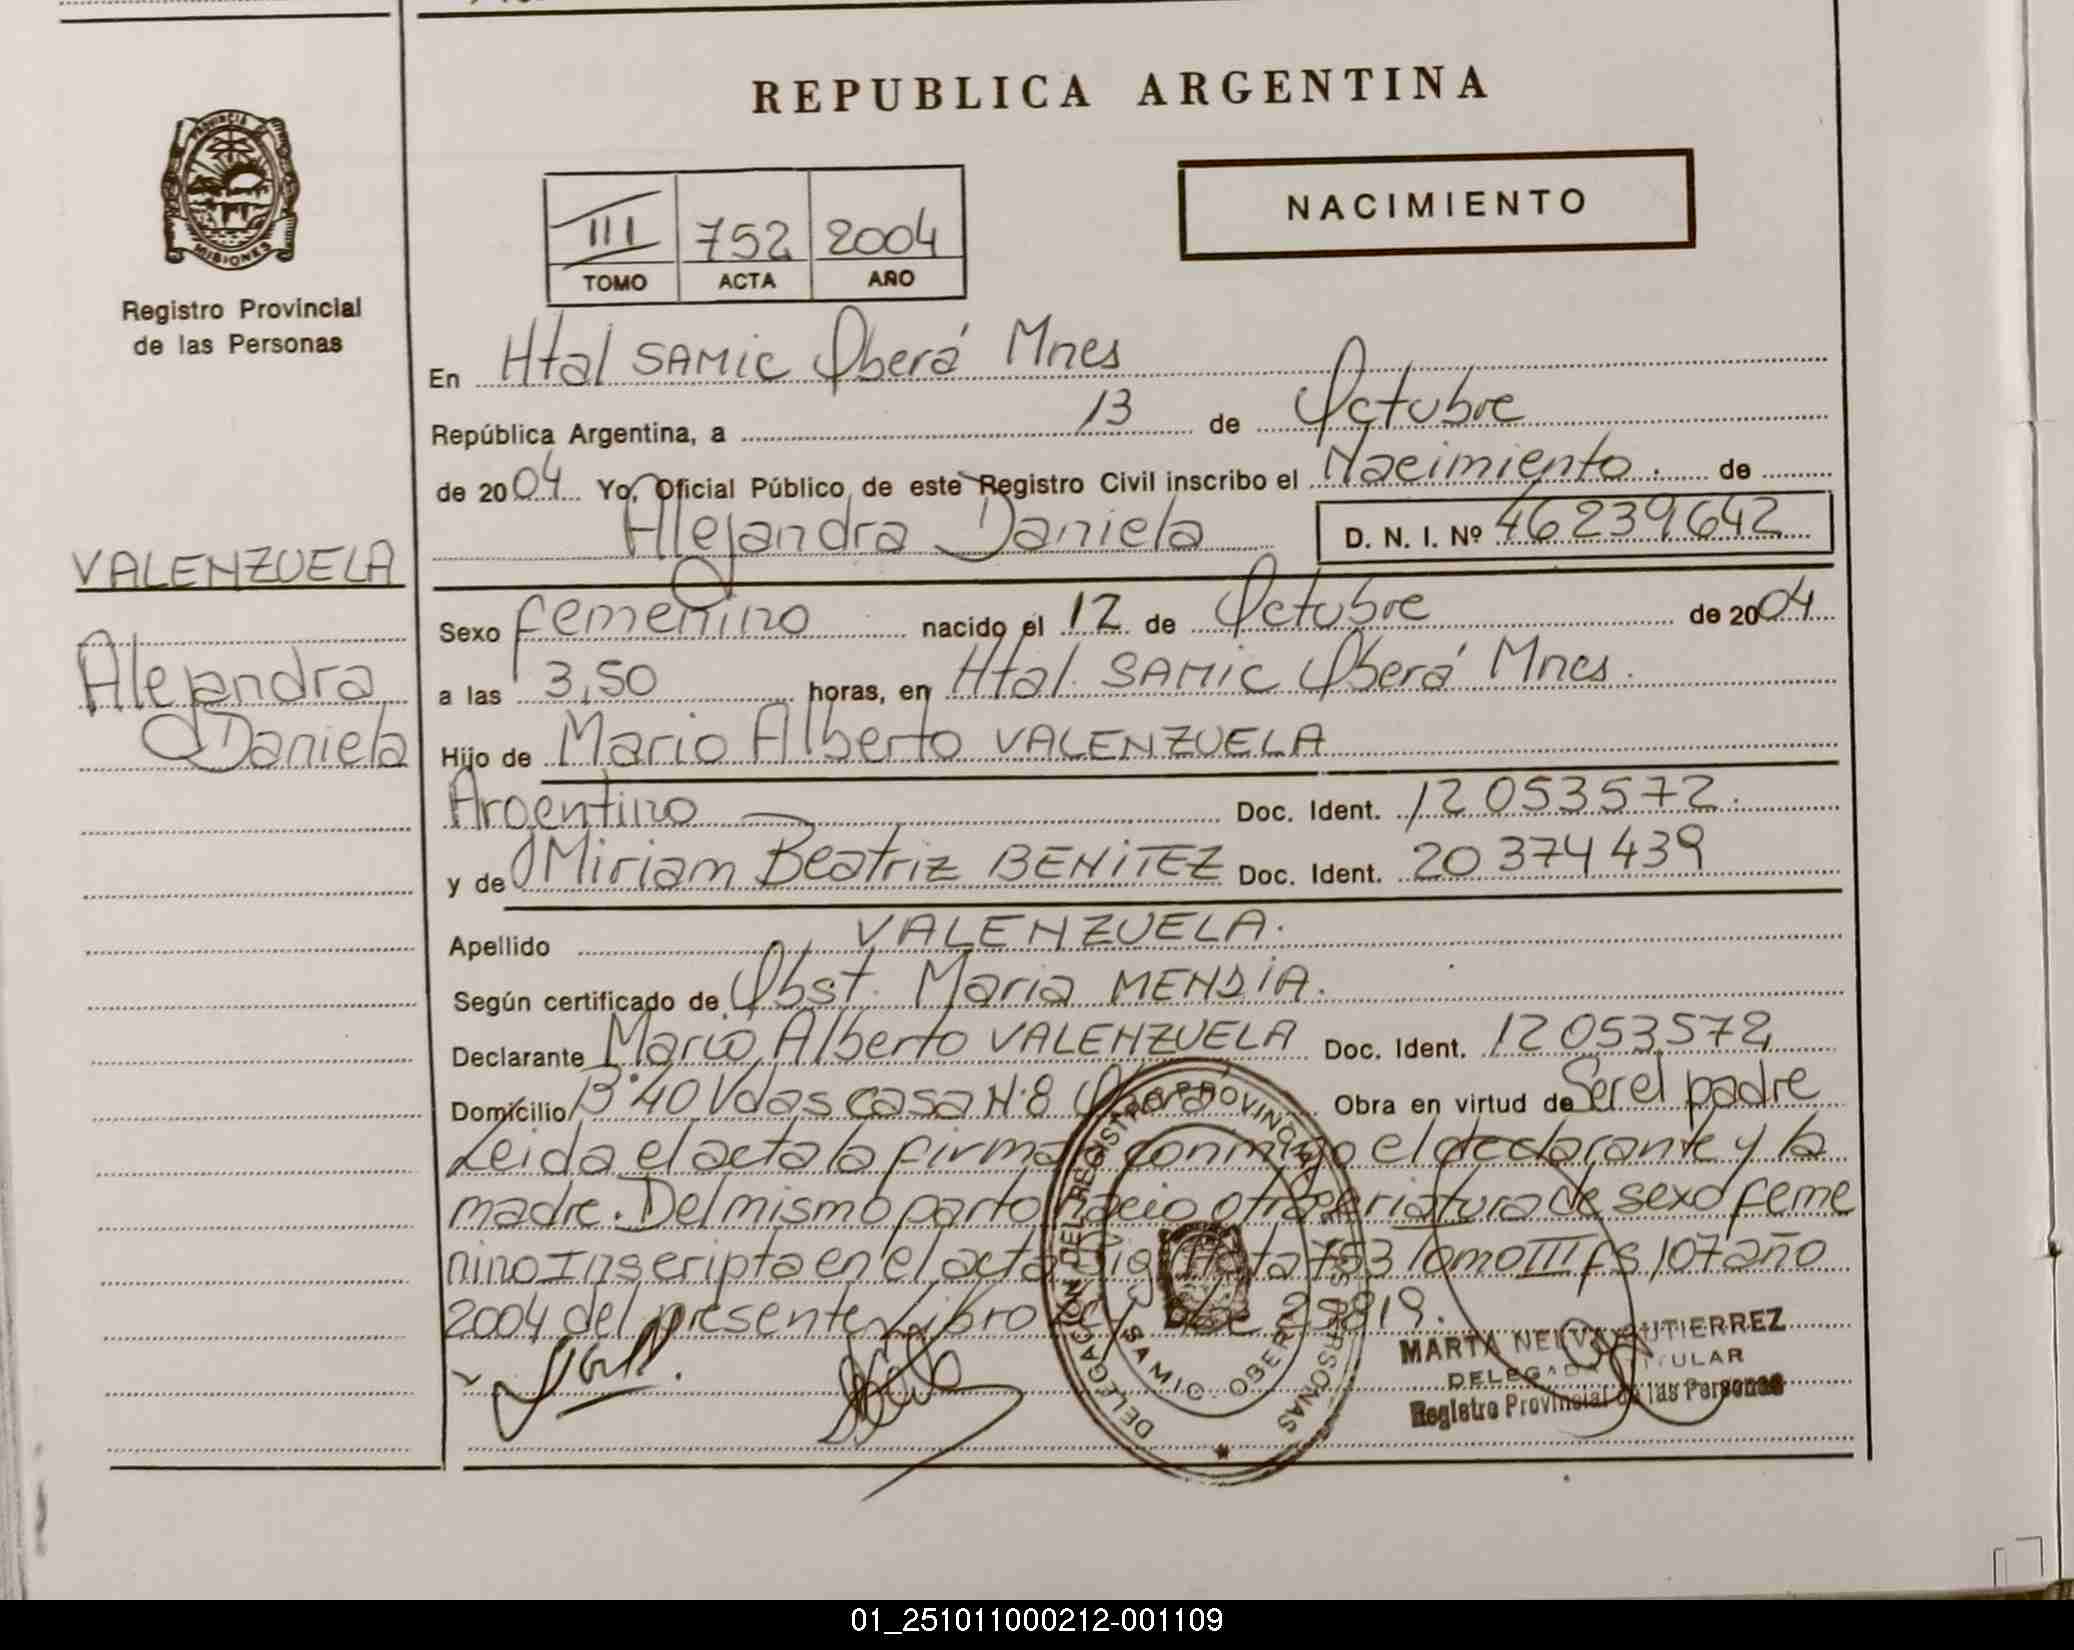 REPUBLICA ARGENTINA
PROVINCIA DE
MISIONES
Registro Provincial
de las Personas
NACIMIENTO
III 752 2004
TOMO ACTA AÑO
En Htal SAMIC Oberá Mnes
República Argentina, a 13 de Octubre
de 2004 Yo, Oficial Público de este Registro Civil inscribo el Nacimiento. de
Alejandra Daniela D. N. I. Nº 46239642
VALENZUELA
Alejandra
Daniela
Sexo femenino nacido el 12 de Octubre de 2004
a las 3,50 horas, en Htal. SAMIC Oberá Mnes.
Hijo de Mario Alberto VALENZUELA
Argentino Doc. Ident. 12053572.
y de Miriam Beatriz BENITEZ Doc. Ident. 20374439
Apellido VALENZUELA.
Según certificado de Obst. Maria MENDIA.
Declarante Mario Alberto VALENZUELA Doc. Ident. 12053572
Domicilio B° 40 Vdas casa N°8 Obera Obra en virtud de Ser el padre
Leida el acta la firma conmigo el declarante y la
madre. Del mismo parto nacio otra criatura de sexo feme
nino Inscripta en el acta Acta 753 Tomo III fs 107 año
2004 del presente Libro
DELEGACION DEL REGISTRO PROVINCIAL DE LAS PERSONAS
SAMIC OBERA
MARTA NELVA GUTIERREZ
DELEGADA TITULAR
Registro Provincial de las Personas
01_251011000212-001109